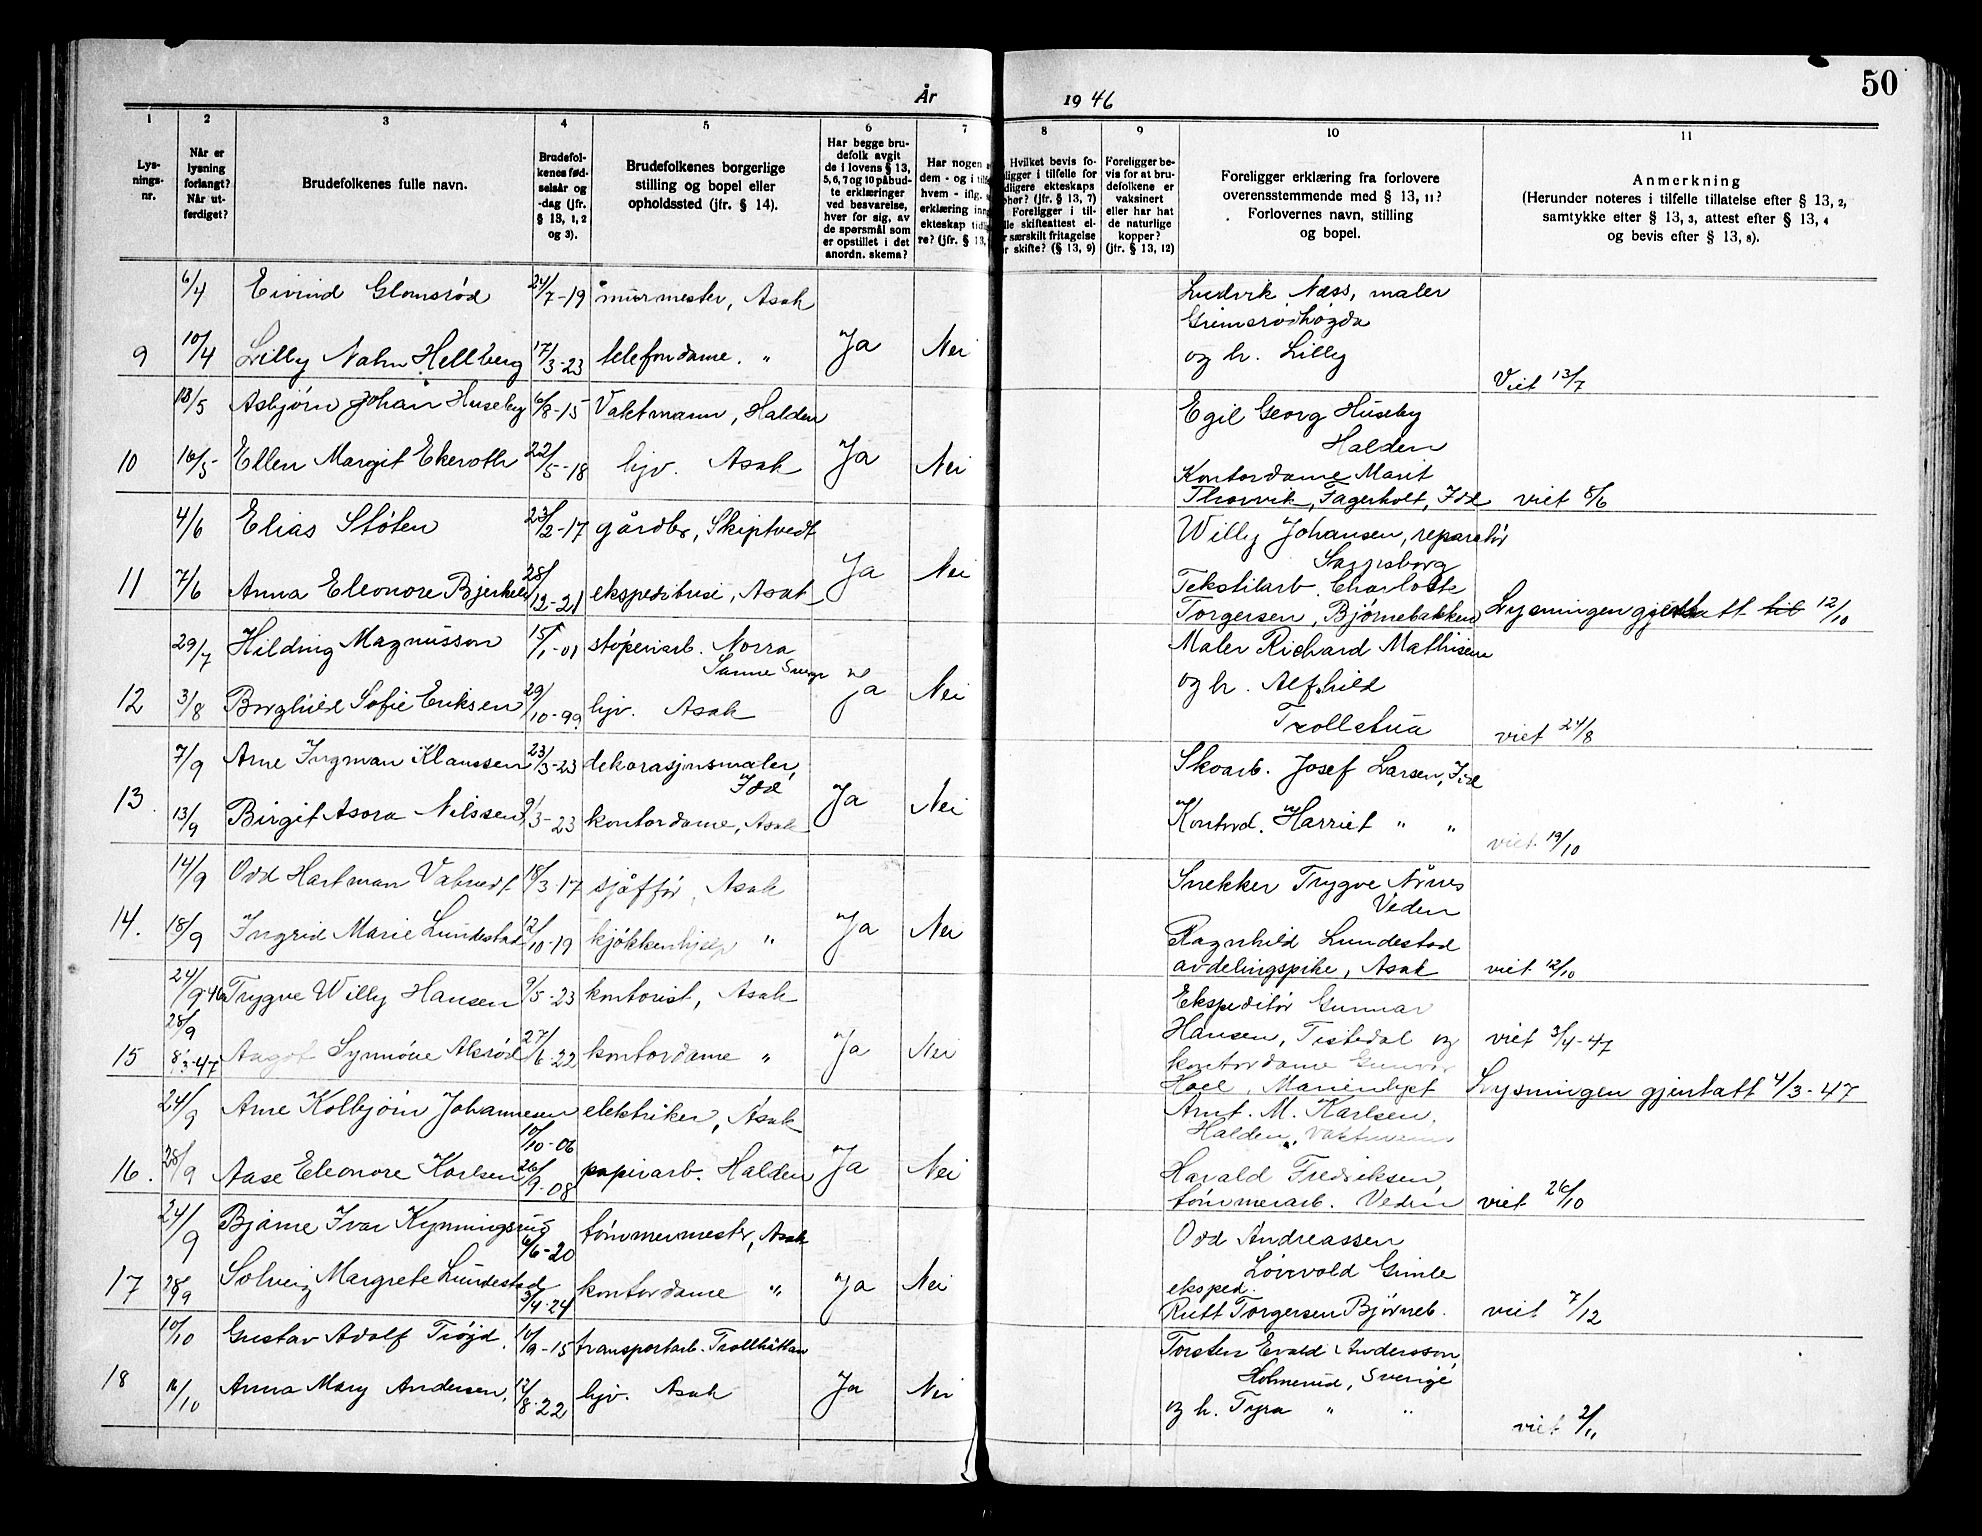 50
År 1946
1 2 3 4 5 6 7 8 9 10 11
Lys-
nings-
nr.
Når er
lysning
forlangt?
Når ut-
ferdiget?
Brudefolkenes fulle navn.
Brudefol-
kenes fød-
selsår og
-dag (jfr.
§ 13, 1, 2
og 3).
Brudefolkenes borgerlige
stilling og bopel eller
opholdssted (jfr. § 14).
Har begge bru-
defolk avgit
de i lovens § 13,
5, 6, 7 og 10 påbud-
te erklæringer
ved besvarelse,
hver for sig, av
de spørsmål som
er opstillet i det
anordn. skema?
Har nogen
dem - og i
hvem - iflg.
erklæring
ekteskap
re? (jfr. § 13,
Hvilket bevis fo-
ligger i tilfelle for
dligere ekteskaps
phør? (jfr. § 13, 7)
Foreligger i til-
lle skifteattest el-
r særskilt fritagelse
r skifte? (§ 13, 9)
Foreligger be-
vis for at bru-
defolkene er
vaksinert
eller har hat
de naturlige
kopper?
(jfr. § 13, 12)
Foreligger erklæring fra forlovere
overensstemmende med § 13, 11?
Forlovernes navn, stilling
og bopel.
Anmerkning
(Herunder noteres i tilfelle tillatelse efter § 13, 2,
samtykke efter § 13, 3, attest efter § 13, 4
og bevis efter § 13, 8).
6/4 Eivind Glomsrød 24/7-19 murmester, Asak
Ludvik Næss, maler
Grimsrødhøgda
9 10/4 Lilly Nahn Hellberg 17/3-23 telefondame. " Ja Nei
og h. Lilly
Viet 13/7
13/5 Asbjørn Johan Huseby 6/8-15 Vaktmann, Halden
Egil Georg Huseby
Halden
10 16/5 Ellen Margit Ekeroth 22/5-18 hjv. Asak Ja Nei
Kontordame Marit
Thorvik, Fagerholt, Idd viet 8/6
4/6 Elias Støten 23/2-17 gårdbr, Skiptvedt
Willy Johansen, reparatør
Sarpsborg
11 7/6 Anna Eleonore 28/12-21 ekspeditrise, Asak Ja Nei
Tekstilarb. Charlotte
Torgersen, Bjørnebakken Lysningen gjentatt 12/10
29/7 Hilding Magnusson 15/1-01 støperiarb. Norra
Sanne
Maler Richard Mathisen
12 3/8 Borghild Sofie Eriksen 29/10-99 hjv. Asak Ja Nei
og h. Alfhild
Trollstua viet 24/8
7/9 Arne Ingman Klaussen 23/3-23 dekorasjonsmaler,
Idd
Skoarb. Josef Larsen, Idd
13. 13/9 Birgit Asora Nilssen 9/3-23 kontordame, Asak Ja Nei
Kontord. Harriet " "
viet 19/10
14/9 Odd Hartman 18/3-17 sjåffør, Asak
Snekker Trygve
Veden
14. 18/9 Ingrid Marie Lundestad 12/10-19 kjøkkenhjelp " Ja Nei
Ragnhild Lundestad
avdelingspike, Asak viet 12/10
24/9-46 Trygve Willy Hansen 9/5-23 kontorist, Asak
28/9
Ekspeditør Gunnar
15 8/3-47 Aagot Synnøve Alsrød 27/6-22 kontordame " Ja Nei
Hansen, Tistedal og viet 3/4-47
kontordame Gunvor
Hoel, Marienlyst Lysningen gjentatt 4/3-47
24/9 Arne Kolbjørn Johannesen elektriker, Asak
10/10-06
Arnt. M. Karlsen,
Halden,
16. 28/9 Aase Eleonore Karlsen 26/9-08 papirarb. Halden Ja Nei
Harald Fredriksen,
tømmerarb. Veden viet 26/10
24/9 Bjarne Ivar Kynningsrud tømmermester, Asak
6/6-20
Odd Andreassen
Løvvold Gimle
17 28/9 Solveig Margrete Lundestad kontordame " Ja Nei
3/4-24
eksped.
Rutt Torgersen Bjørneb. viet 7/12
10/10 Gustav Adolf Tröjd. 10/9-15 transportarb. Trollhättan
Torsten Evald Andersson,
Holmerud, Sverige
18 16/10 Anna Mary Andersen, 12/8-22 hjv. Asak Ja Nei
og h. Tyra " "
viet 2/11